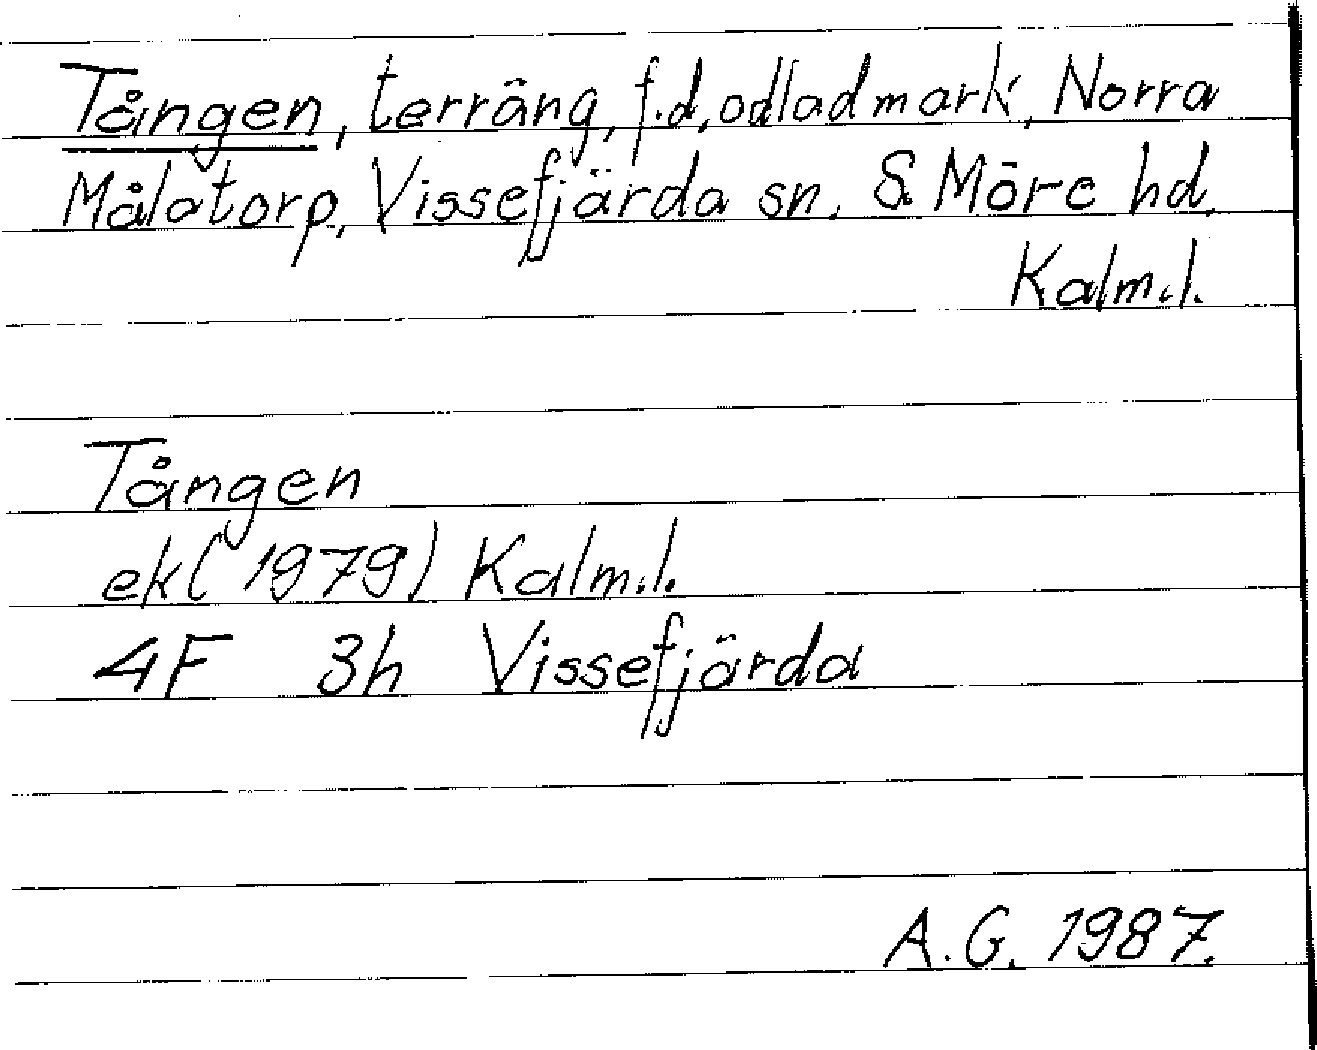 Tången, terräng, f.d. odlad mark, Norra
Målatorp, Vissefjärda sn, S. Möre hd,
Kalm.l.
Tången
ek (1979) Kalm.l.
4F 3h Vissefjärda
A.G. 1987.